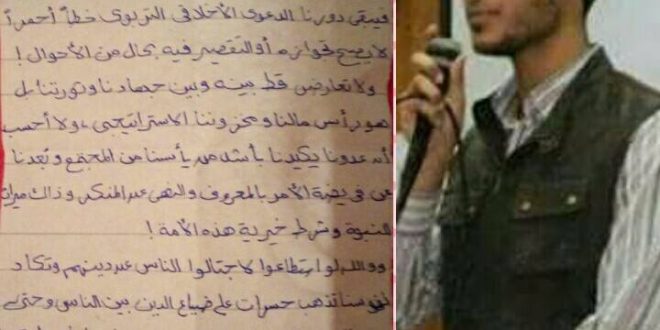 فيبقى دورنا الدعوى الأخلاقى التربوى خطاً أحمراً
لا يصح تجاوزه أو التقصير فيه بحال من الأحوال !
ولا تعارض قط بينه وبين جهادنا وثورتنا بل
هو رأس مالنا ومخزوننا الاستراتيجى ، ولا أحسب
أن عدونا يكيدنا بأشد من يأسنا من المجتمع وبُعدنا
عن فريضة الأمر بالمعروف والنهى عن المنكر وذاك ميراث
النبوة وشرط خيرية هذه الأمة !
ووالله لو استطاعوا لاجتالوا الناس عن دينهم وتكاد
تذهب حسرات على ضياع الدين بين الناس وحتى